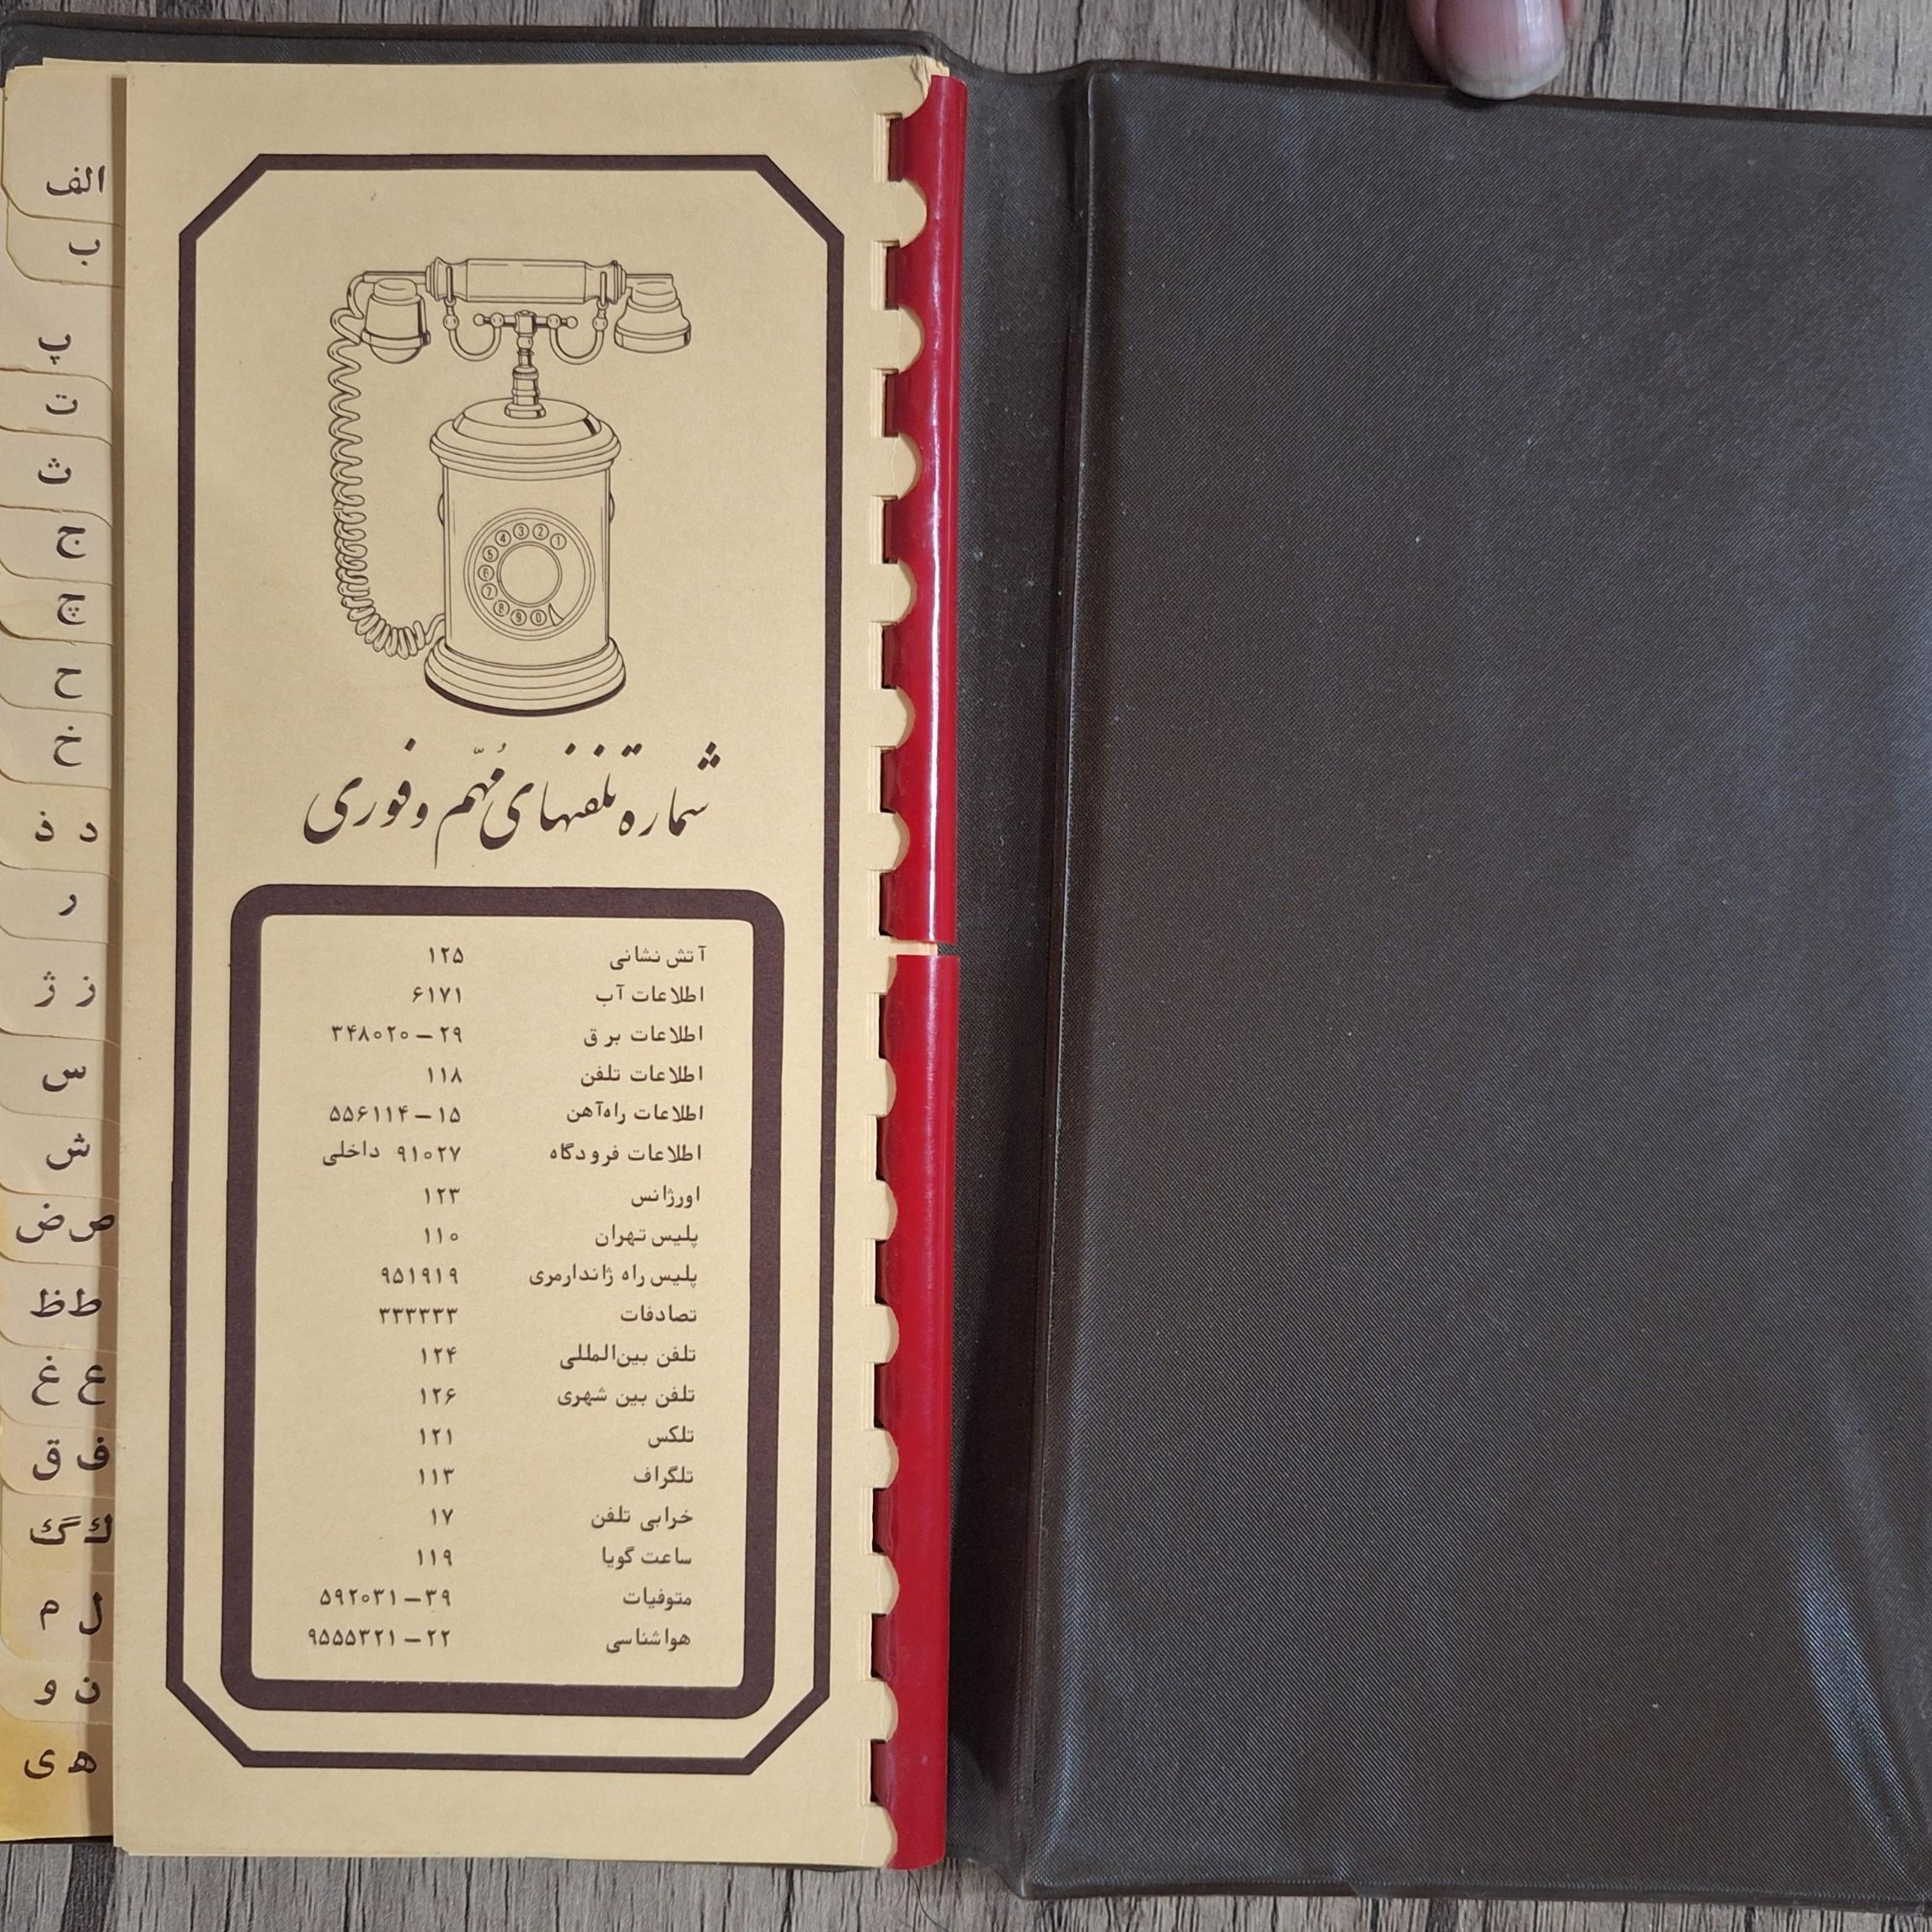 شماره تلفنهای مُهّم و فوری
آتش نشانی ۱۲۵
اطلاعات آب ۶۱۷۱
اطلاعات برق ۲۹ – ۳۴۸۰۲۰
اطلاعات تلفن ۱۱۸
اطلاعات راه‌آهن ۱۵ – ۵۵۶۱۱۴
اطلاعات فرودگاه ۹۱۰۲۷ داخلی
اورژانس ۱۲۳
پلیس تهران ۱۱۰
پلیس راه ژاندارمری ۹۵۱۹۱۹
تصادفات ۳۳۳۳۳۳
تلفن بین‌المللی ۱۲۴
تلفن بین شهری ۱۲۶
تلکس ۱۲۱
تلگراف ۱۱۳
خرابی تلفن ۱۷
ساعت گویا ۱۱۹
متوفیات ۳۹ – ۵۹۲۰۳۱
هواشناسی ۲۲ – ۹۵۵۵۳۲۱
الف
ب
پ
ت
ث
ج
چ
ح
خ
د ذ
ر
ز ژ
س
ش
ص ض
ط ظ
ع غ
ف ق
ك گ
ل م
ن و
ه ی
1 2 3 4 5 6 7 8 9 0